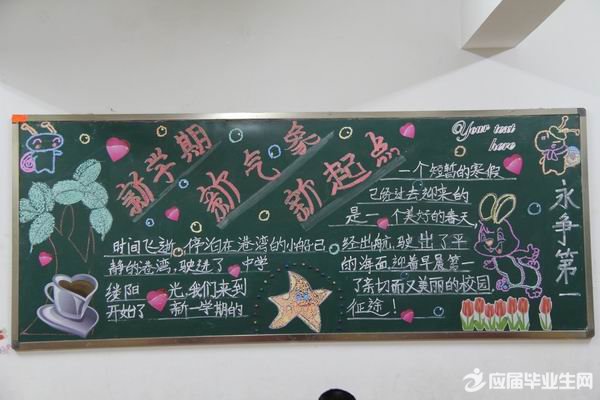 新学期
新气象
新起点
@Your text
here
一个短暂的寒假
已经过去迎来的
是一个美好的春天
时间飞逝,停泊在港湾的小船已经出航,驶出了平
静的港湾,驶进了 中学的海面,迎着早晨第一
缕阳光,我们来到了亲切而又美丽的校园,
开始了新一学期的征途!
永争第一
应届毕业生网